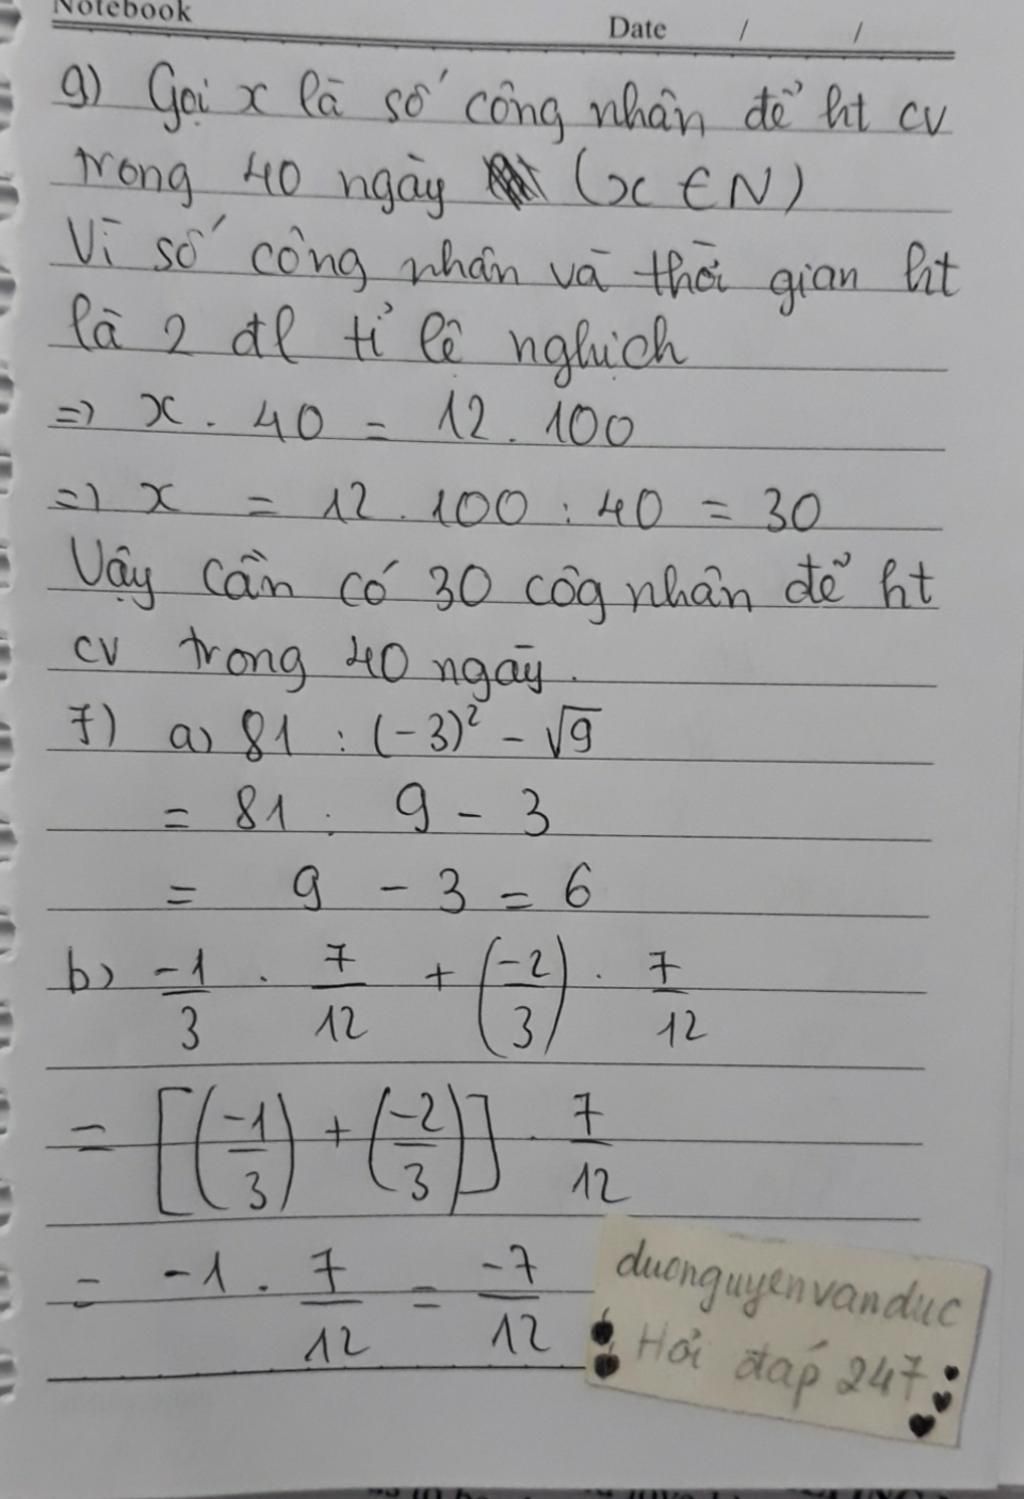 Notebook
Date / /
9) Gọi x là số công nhân để ht cv
trong 40 ngày (x ∈ N)
Vì số công nhân và thời gian ht
là 2 đl tỉ lệ nghịch
=> x . 40 = 12 . 100
=> x = 12 . 100 : 40 = 30
Vậy cần có 30 côg nhân để ht
cv trong 40 ngày.
7) a) 81 : (-3)² - √9
= 81 : 9 - 3
= 9 - 3 = 6
b) -1/3 . 7/12 + (-2/3) . 7/12
= [(-1/3) + (-2/3)] . 7/12
= -1 . 7/12 = -7/12
duonguyenvanduc
Hỏi đáp 247